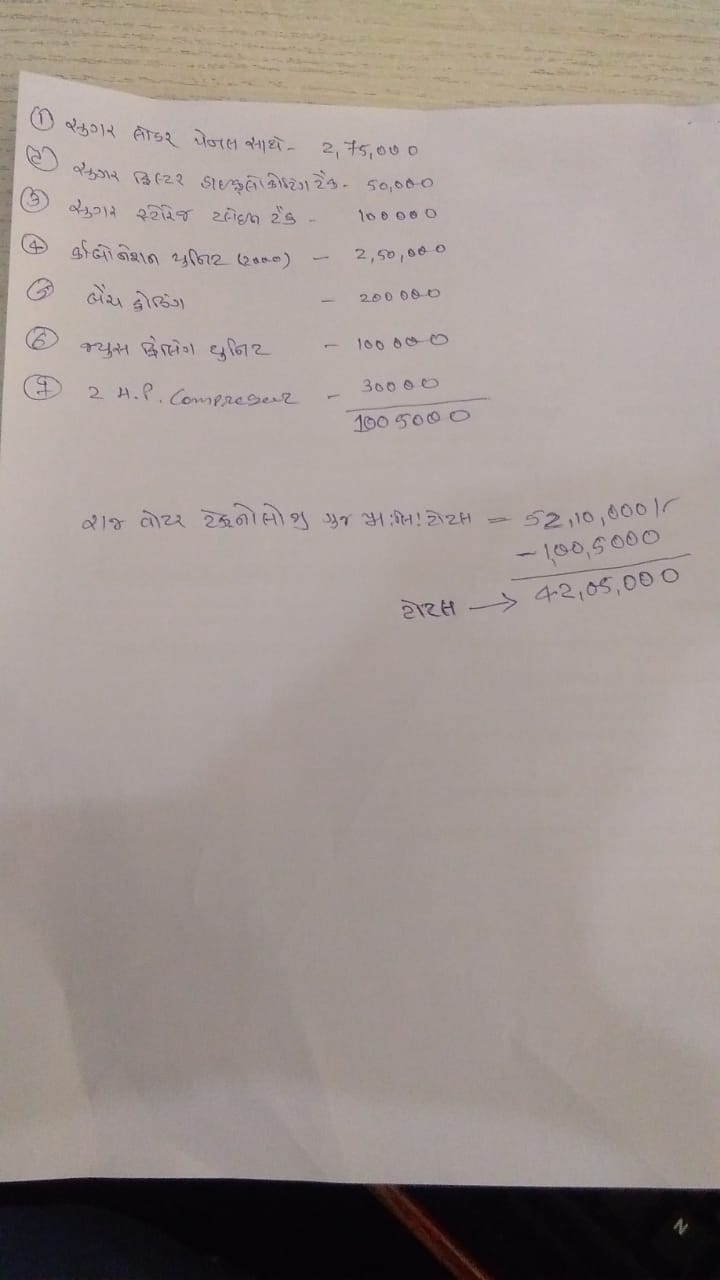 ① સુગર લોડર પેનલ સાથે - 2,75,000
② સુગર ફિલ્ટર ટેંક - 50,000
③ સુગર સ્ટોરેજ ટેંક - 100000
④ કાર્બોનેશન યુનિટ (2000) - 2,50,000
⑤ બેચ કોડિંગ - 200000
⑥ જ્યુસ ફિલિંગ યુનિટ - 100000
⑦ 2 H.P. Compreseur - 30000
1005000
રાજ વોટર ટેકનોલોજી ટોટલ = 52,10,000/-
-1,00,5000
ટોટલ → 42,05,000
N